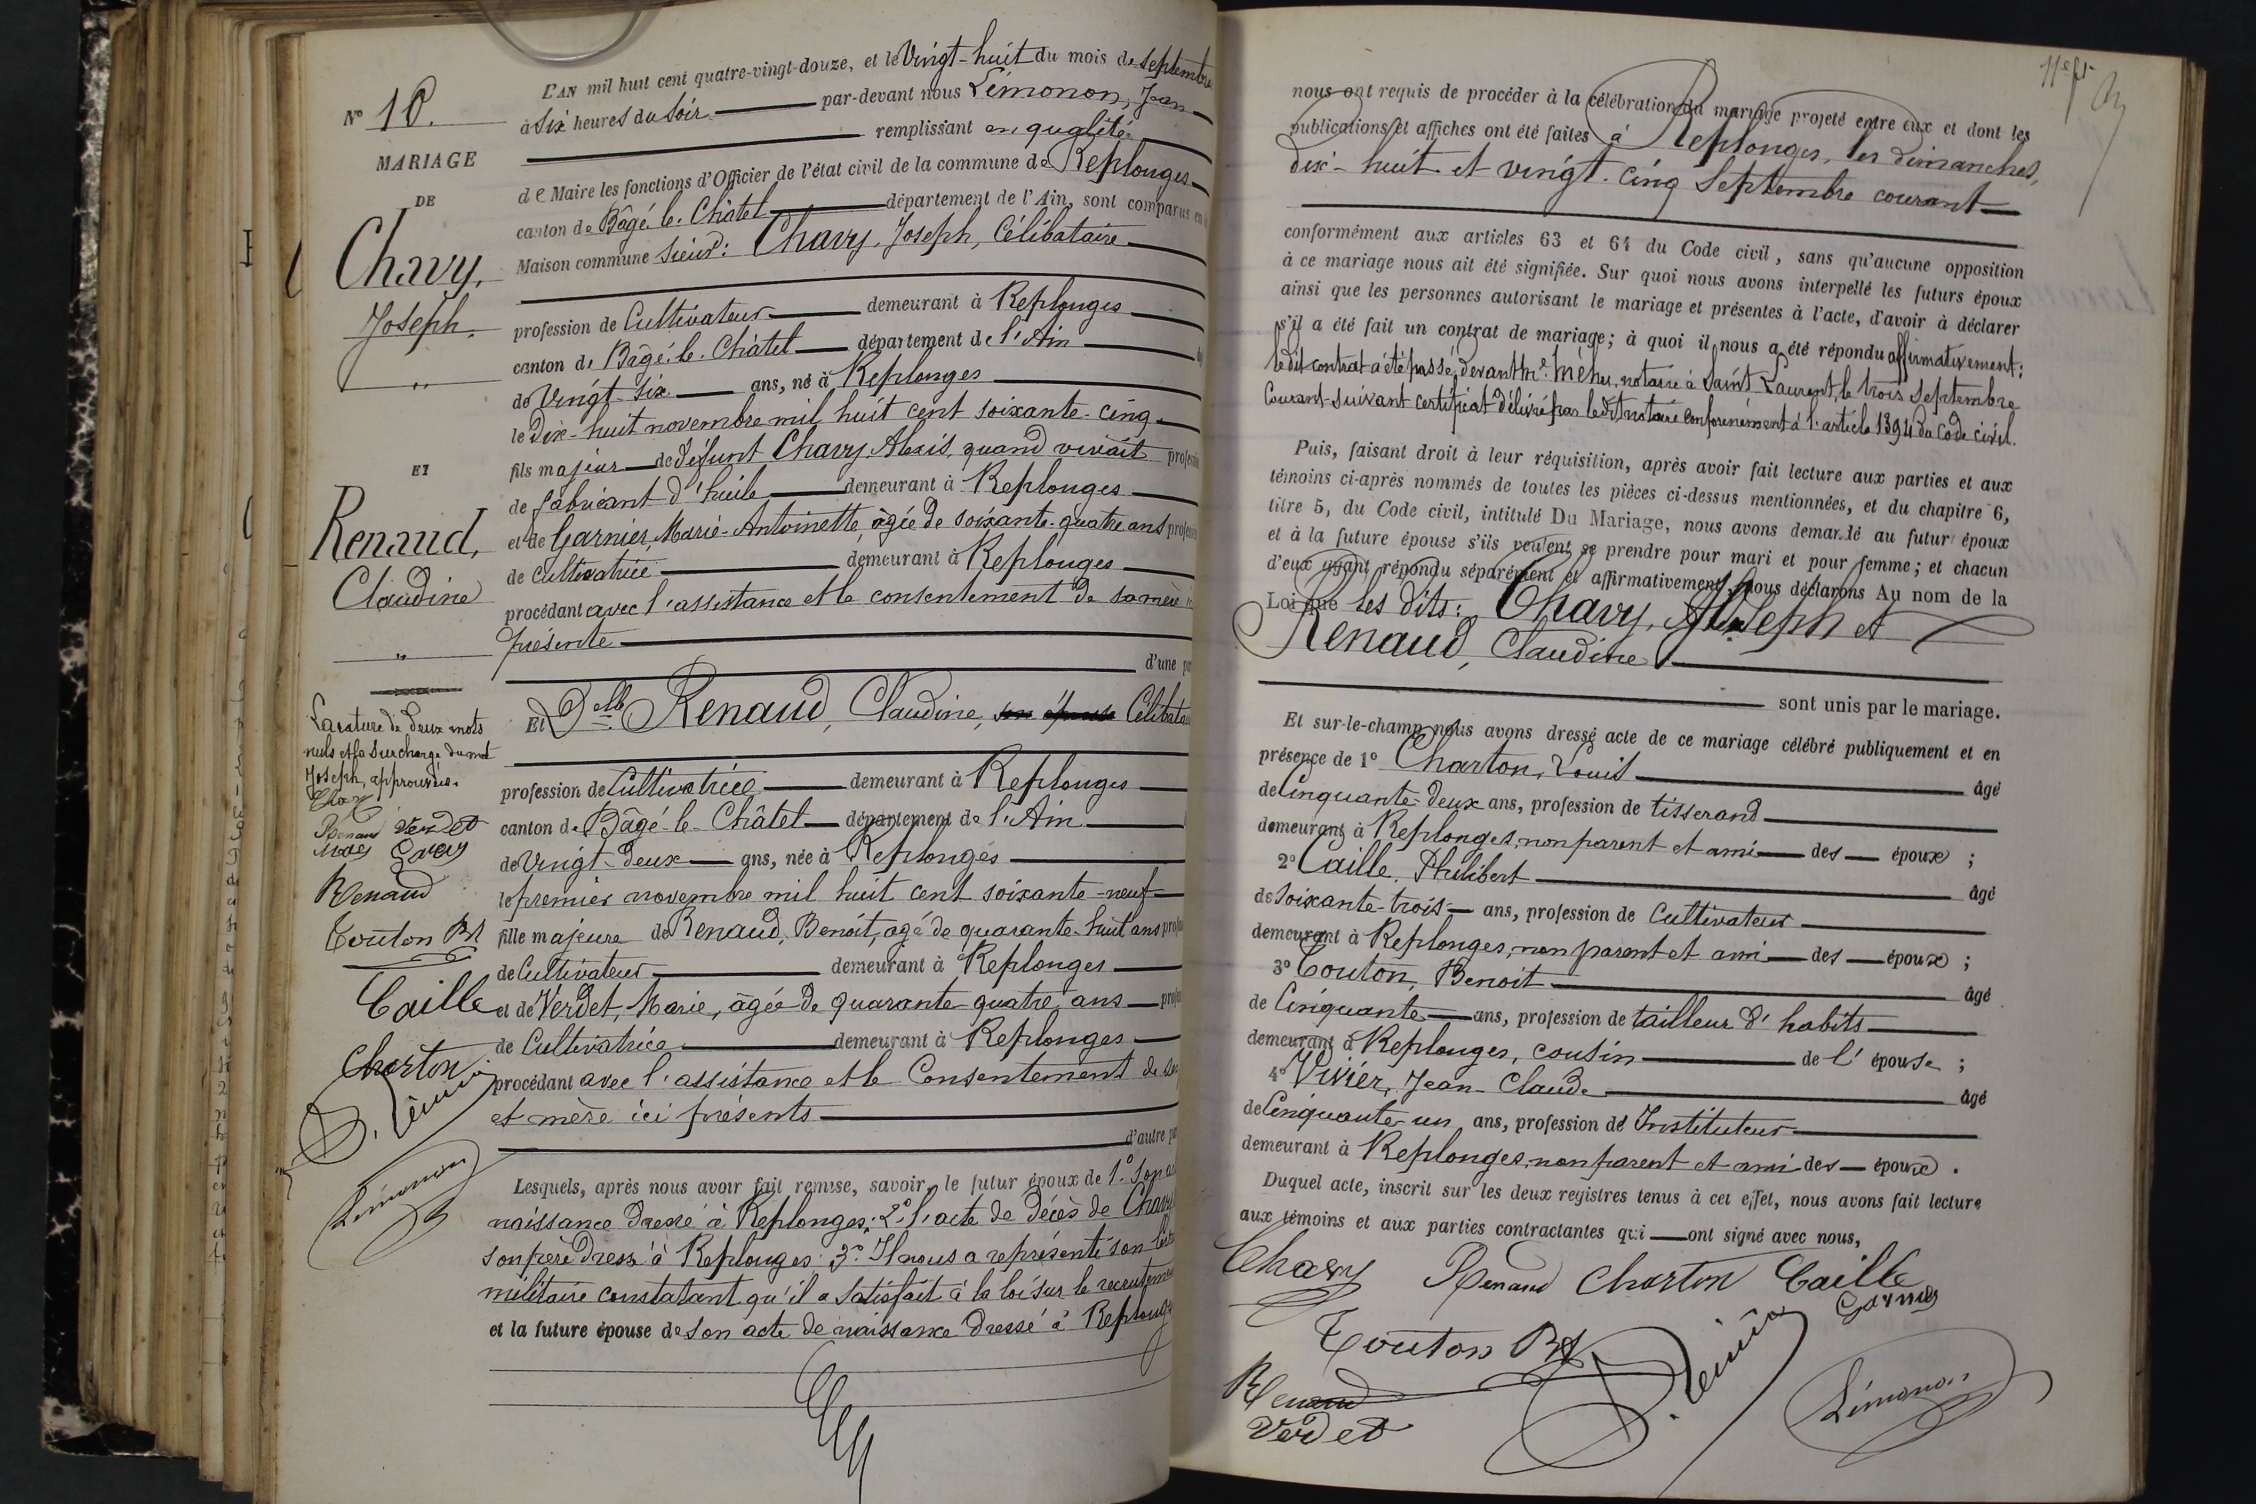 N° 10.
MARIAGE
DE
Chavy,
Joseph.
"
ET
Renaud,
Claudine
"
La rature de deux mots
nuls et la surcharge du mot
Joseph, approuvées.
Chavy
Renaud Verdet
Renaud
Touton Bt
Caille
Charton
Limonon
L'AN mil huit cent quatre-vingt-douze, et le Vingt-huit du mois de septembre
à six heures du soir par-devant nous Limonon, Jean
remplissant en qualité
de Maire les fonctions d'Officier de l'état civil de la commune de Replonges
canton de Bâgé-le-Châtel département de l'Ain, sont comparus en
Maison commune sieur: Chavy, Joseph, Célibataire
profession de Cultivateur demeurant à Replonges
canton de Bâgé-le-Châtel département de l'Ain
de Vingt-six ans, né à Replonges
le Dix-huit novembre mil huit cent soixante-cinq
fils majeur de défunt Chavy, Alexis, quand vivait
de fabricant d'huile demeurant à Replonges
et de Garnier, Marie-Antoinette, âgée de soixante-quatre ans
de Cultivatrice demeurant à Replonges
procédant avec l'assistance et le consentement de sa mère
présente
d'une
Et Delle Renaud, Claudine, son épouse
profession de Cultivatrice demeurant à Replonges
canton de Bâgé-le-Châtel département de l'Ain
de Vingt-deux ans, née à Replonges
le premier novembre mil huit cent soixante-neuf
fille majeure de Renaud, Benoit, âgé de quarante-huit ans
de Cultivateur demeurant à Replonges
et de Verdet, Marie, âgée de quarante-quatre ans
de Cultivatrice demeurant à Replonges
procédant avec l'assistance et le Consentement de
et mère ici présents
d'autre
Lesquels, après nous avoir fait remise, savoir, le futur époux de 1° Son
naissance Dressé à Replonges; 2° l'acte de décès de Chavy
son père Dressé à Replonges: 3° Il nous a représenté son
militaire constatant qu'il a satisfait à la loi sur le
et la future épouse de Son acte de naissance Dressé à
nous ont requis de procéder à la célébration du mariage projeté entre eux et dont les
publications et affiches ont été faites à Replonges, les dimanches,
dix-huit et vingt-cinq Septembre courant
conformément aux articles 63 et 64 du Code civil, sans qu'aucune opposition
à ce mariage nous ait été signifiée. Sur quoi nous avons interpellé les futurs époux
ainsi que les personnes autorisant le mariage et présentes à l'acte, d'avoir à déclarer
s'il a été fait un contrat de mariage; à quoi il nous a été répondu affirmativement;
ledit contrat a été passé devant Me Méhu, notaire à Saint Laurent, le trois Septembre
Courant suivant certificat délivré par ledit notaire conformément à l'article 1394 du Code civil.
Puis, faisant droit à leur réquisition, après avoir fait lecture aux parties et aux
témoins ci-après nommés de toutes les pièces ci-dessus mentionnées, et du chapitre 6,
titre 5, du Code civil, intitulé Du Mariage, nous avons demandé au futur époux
et à la future épouse s'ils veulent se prendre pour mari et pour femme; et chacun
d'eux ayant répondu séparément et affirmativement, nous déclarons Au nom de la
Loi que les dits: Chavy, Joseph et
Renaud, Claudine
sont unis par le mariage.
Et sur-le-champ nous avons dressé acte de ce mariage célébré publiquement et en
présence de 1° Charton, Louis âgé
de Cinquante-deux ans, profession de tisserand
demeurant à Replonges, non parent et ami des époux;
2° Caille, Philibert âgé
de Soixante-trois ans, profession de Cultivateur
demeurant à Replonges, non parent et ami des époux;
3° Touton, Benoit âgé
de Cinquante ans, profession de tailleur d'habits
demeurant à Replonges, cousin de l'épouse;
4° Vivier, Jean-Claude âgé
de Cinquante-un ans, profession de Instituteur
demeurant à Replonges, non parent et ami des époux.
Duquel acte, inscrit sur les deux registres tenus à cet effet, nous avons fait lecture
aux témoins et aux parties contractantes qui ont signé avec nous,
Chavy Renaud Charton Caille
Garnier
Touton Bt
Renaud
Verdet
Limonon